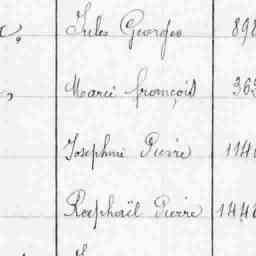 Jules Georges 898
Marie françois 363
Josephine Pierre 114
Raphaël Pierre 144